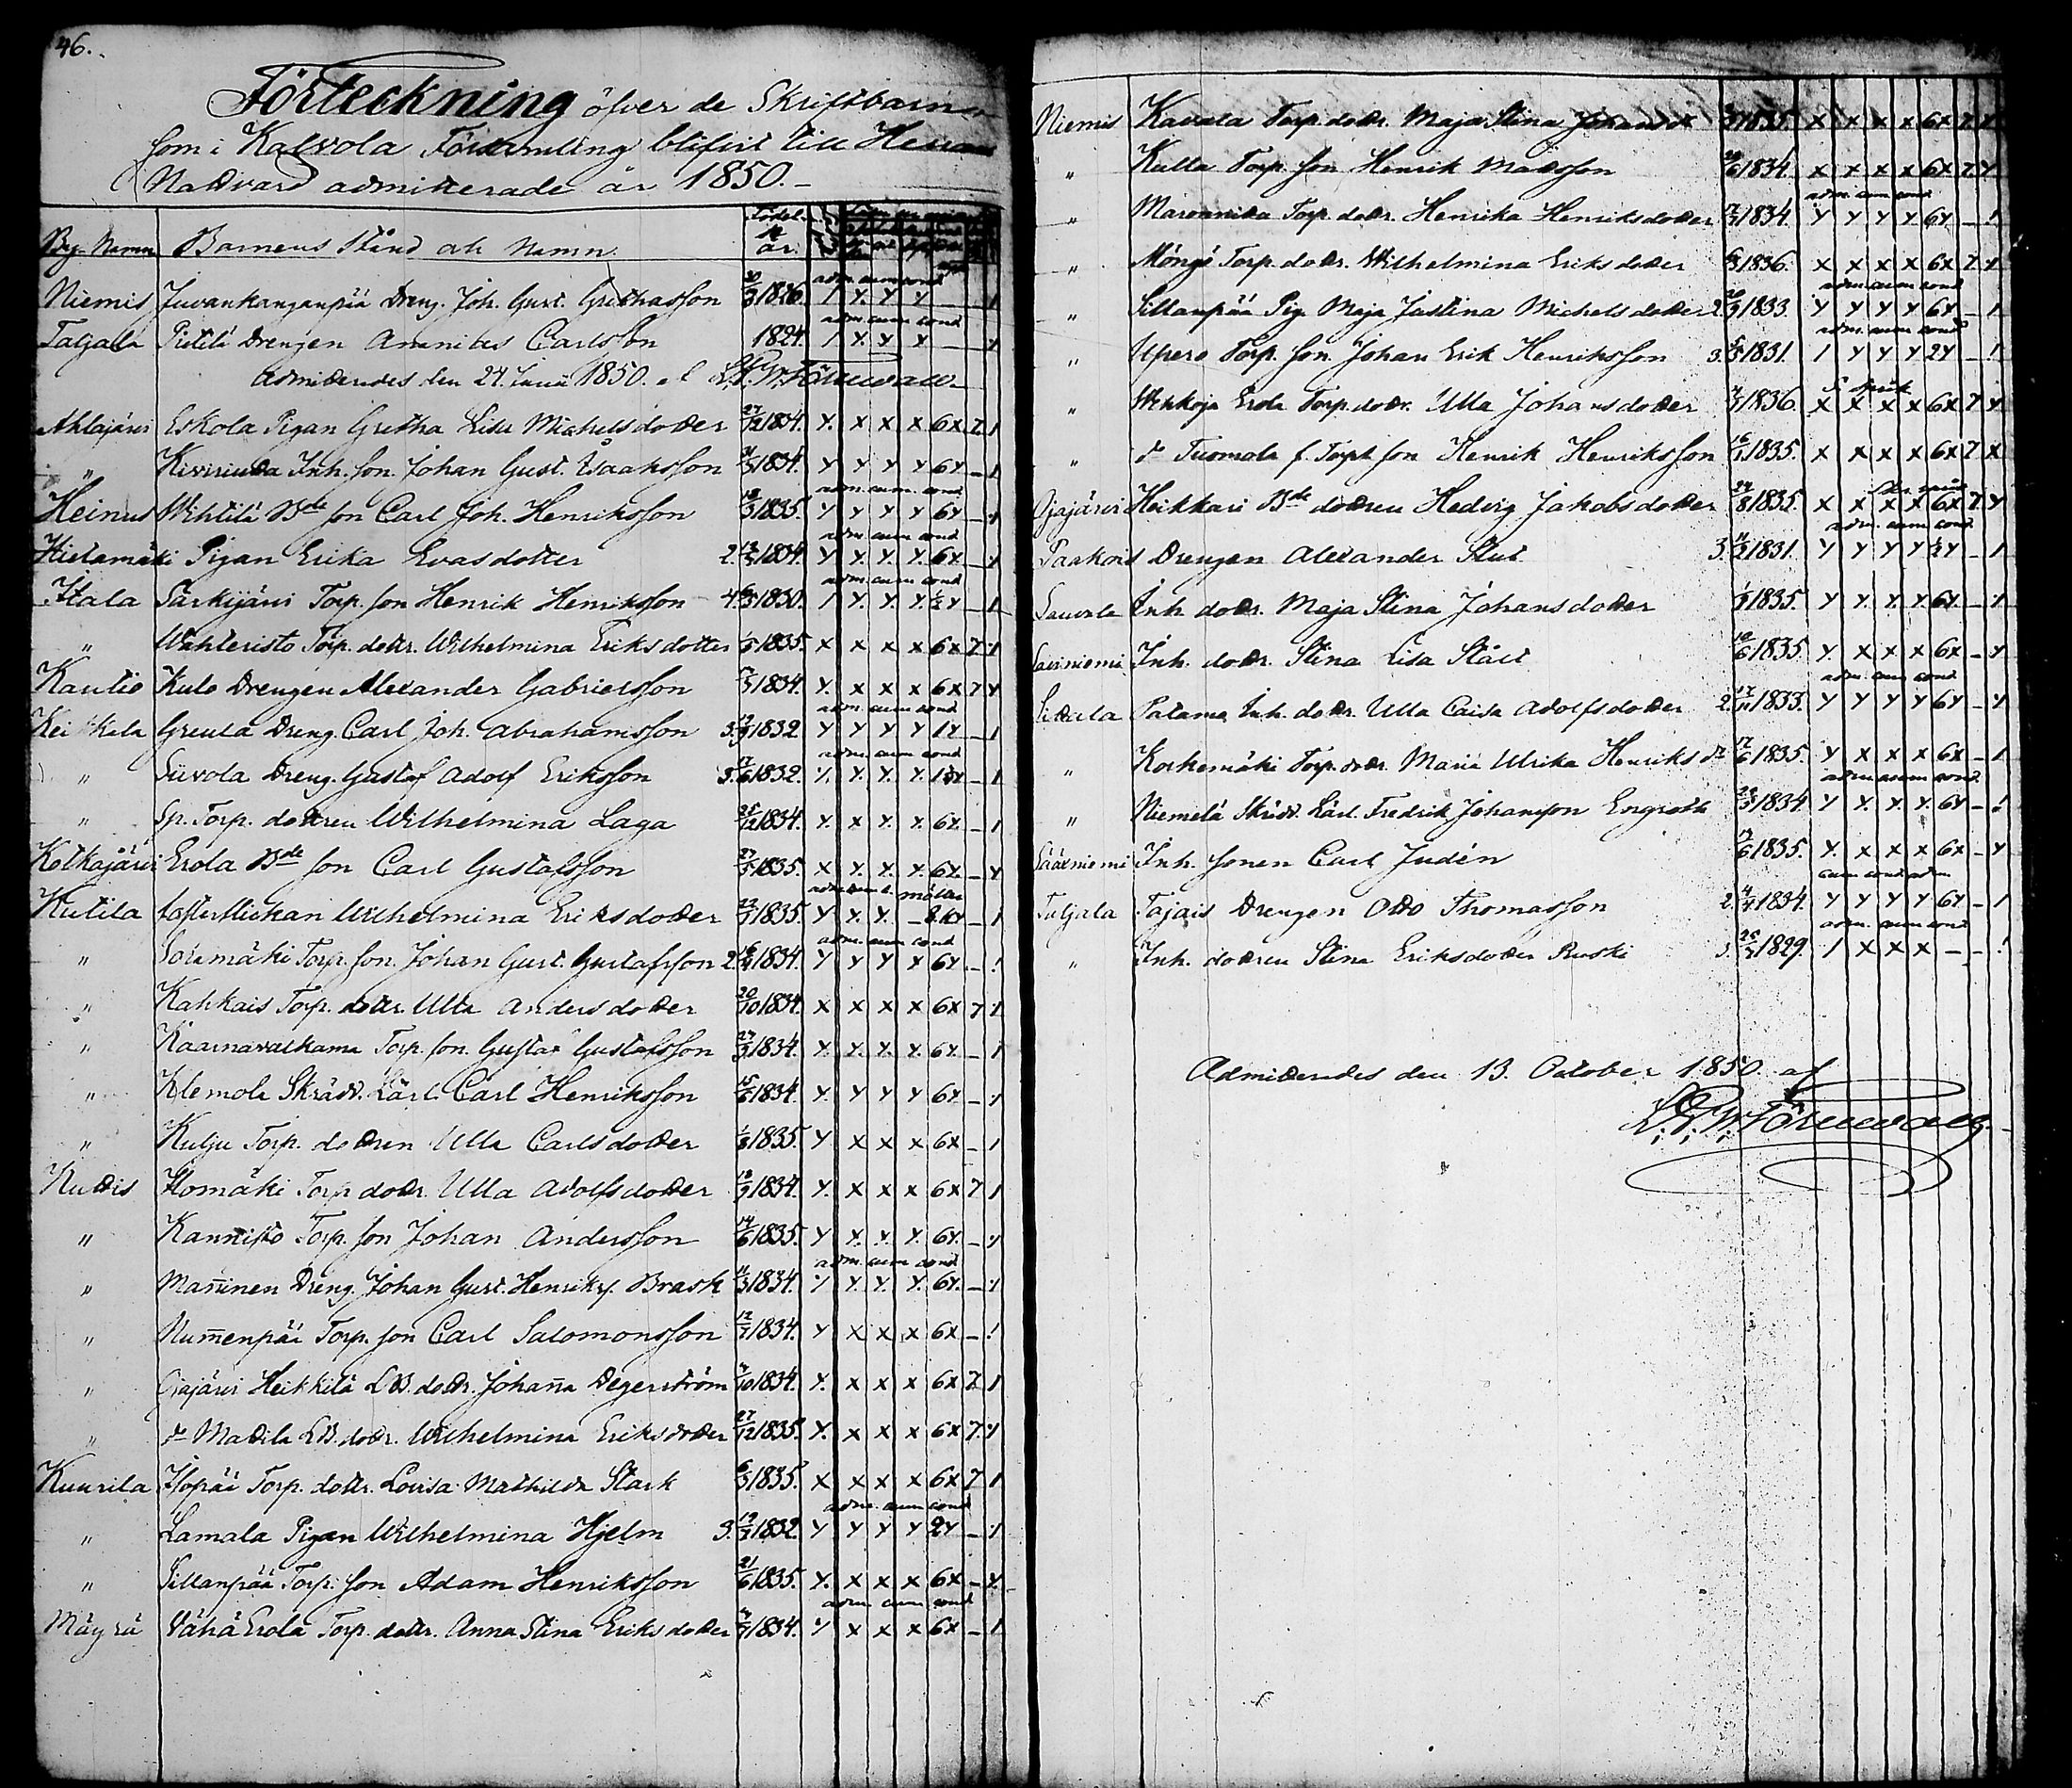 46.
Förteckning öfver de Skriftbarn
som i Kalvola Församling blifvit till Herrans
Nattvard admitterade år 1850.
By. Namn Barnens Stånd och Namn. Födel. år.
adm. cum cond
Niemis Juvankanganpää Dreng. Joh. Gust. Grethasson 1826. / Y Y Y
adm. cum cond
Tagala Pietilä Drengen Ananitas Carlsson 1824. / Y Y X
Admitterades den 24. Junii 1850. af L. G. W. Törnwall
Ahlajärvi Eskola Pigan Gretha Lisa Michelsdotter 27/12 1834. Y. X X X 6X 7 1
" Kiviriutta Inh. son. Johan Gust. Isaaksson 1834. Y Y Y Y 6Y _ 1
adm. cum. cond
Heinus Wihtilä Bde son Carl Joh. Henriksson 18/3 1835. Y Y Y Y 6Y
adm. cum cond
Hietamäki Pigan Erika Evasdotter 2. 1834. Y Y. Y. Y. 6Y
adm. cum cond
Itala Särkijärvi Torp. son Henrik Henriksson 4. 1830. / Y. Y. Y. ½Y _ 1
" Wahteristo Torp. dottr. Wilhelmina Eriksdotter 1835. X X X X 6X 7 Y
Kautio Kulo Drengen Alexander Gabrielsson 1834. Y. X X X 6X 7 Y
adm. cum cond
Keikkala Greula Dreng. Carl Joh. Abrahamsson 3. 1832 Y Y Y Y 1Y _ 1
adm. cum cond
" Siivola Dreng. Gustaf Adolf Eriksson 3. 1832. Y. Y. Y. Y. _ 1
" Sp. Torp. dottren Wilhelmina Laga 25/12 1834. Y. X Y. Y. 6Y. _ 1
Kotkajärvi Erola Bde son Carl Gustafsson 1835. X Y. Y. Y. 6Y. _ Y
adm. cum c.
Kutila Wilhelmina Eriksdotter 1835. Y Y. Y. _ 1
adm. cum cond
" Soramäki Torp. son. Johan Gust. Gustafsson 2. 1834. Y Y Y Y 6Y _ !
" Kahkais Torp. dottr. Ulla Andersdotter 20/10 1834. X X X X 6X 7 Y
" Kaarnavalkama Torp. son. Gustaf Gustafsson 27/3 1834. Y. Y. Y. Y. 6Y. _ 1
" Klemola Skrädd. Lärl. Carl Henriksson 15/6 1834. Y. Y Y Y 6Y. _ Y
" Kulju Torp. dottren Ulla Carlsdotter 1835. Y X X X 6X _ 1
Kuttis Homäki Torp dottr. Ulla Adolfsdotter 1834. Y. X X X 6X 7 1
" Kannisto Torp. son Johan Andersson 14/6 1835. Y Y. Y. Y. 6Y. _ Y
adm. cum cond
" Maninen Dreng. Johan Gust. Henriks. Brask 11/3 1834. Y Y. Y. Y. 6Y. _ Y
" Numenpää Torp. son Carl Salomonsson 1834. Y X X X 6X _ !
" Ojajärvi Heikkilä LB. dottr. Johana Degerström 1834. Y. X X X 6X 7 1
" d:o Mattila LB. dottr. Wilhelmina Eriksdotter 27/12 1835. Y. X X X 6X 7 Y
Kuurila Isopää Torp. dottr. Lovisa Mathilda Stark 1835. X X X X 6X 7 1
adm. cum cond
" Lamala Pigan Wilhelmina Hjelm 3. 1832. Y Y Y Y 2Y _ Y
" Sillanpää Torp. son Adam Henriksson 21/6 1835. Y. X X X 6X _ Y
adm. cum cond
Mäyrä Vähä Erola Torp. dottr. Anna Stina Eriksdotter 1834. Y X X X 6X _ 1
Niemis Kavala Torp. dottr. Maja Stina Johansd 1835. X X X X 6X 7 Y
" Kulla Torp. son Henrik Mattsson 1834. X X X X 6X 7 Y
adm. cum cond
" Marennika Torp. dottr. Henrika Henriksdotter 1834. Y Y Y Y. 6Y. _ !
" Möngö Torp. dottr. Wilhelmina Eriksdotter 1836. X X X X 6X 7 Y
adm. cum cond
" Sillanpää Pig. Maja Justina Michelsdotter 2. 1833. Y Y Y Y 6Y _ 1
adm. cum cond
" Upero Torp. son. Johan Erik Henriksson 3. 1831. / Y Y Y 2Y _ !
" Wehkoja Erola Torp. dottr. Ulla Johansdotter 1836. X X X X 6X 7 Y
" d:o Tuomola f. Torp. son Henrik Henriksson 1835. X X X X 6X 7 X
Ojajärvi Heikkari Bde dottren Hedvig Jakobsdotter 24/8 1835. X X X X 6X 7 Y
adm. cum cond
Paakois Drengen Alexander Slut 3. 1831. Y Y Y Y ½Y _ 1
Sauvala Inh. dottr. Maja Stina Johansdotter 1835. Y Y. Y. Y. 6Y _ Y
Sauvniemi Inh. dottr. Stina Lisa Stålt 10/6 1835 Y. X X X 6X _ Y
adm. cum cond
Sittala Palama Inh. dottr. Ulla Caisa Adolfsdotter 2. 1833. Y Y Y Y 6Y _ Y
" Korkemäki Torp. dottr. Maria Ulrika Henriksdr 17/6 1835. Y X X X 6X _ 1
adm. cum cond.
" Niemelä Skrädd. Lärl. Fredrik Johansson Engroth 23/3 1834 Y Y. Y. Y. 6Y _ !
Säärniemi Inh. sonen Carl Judén 1835. Y. X X X 6X _ Y
cum cond adm
Taljala Tajais Drengen Otto Thomasson 2. 1834. Y Y Y Y 6Y _ 1
adm. cum cond
" Inh. dottren Stina Eriksdotter Ruski 3. 1829. / X X X _ _ !
Admitterades den 13. October 1850. af
L. G. W. Törnwall